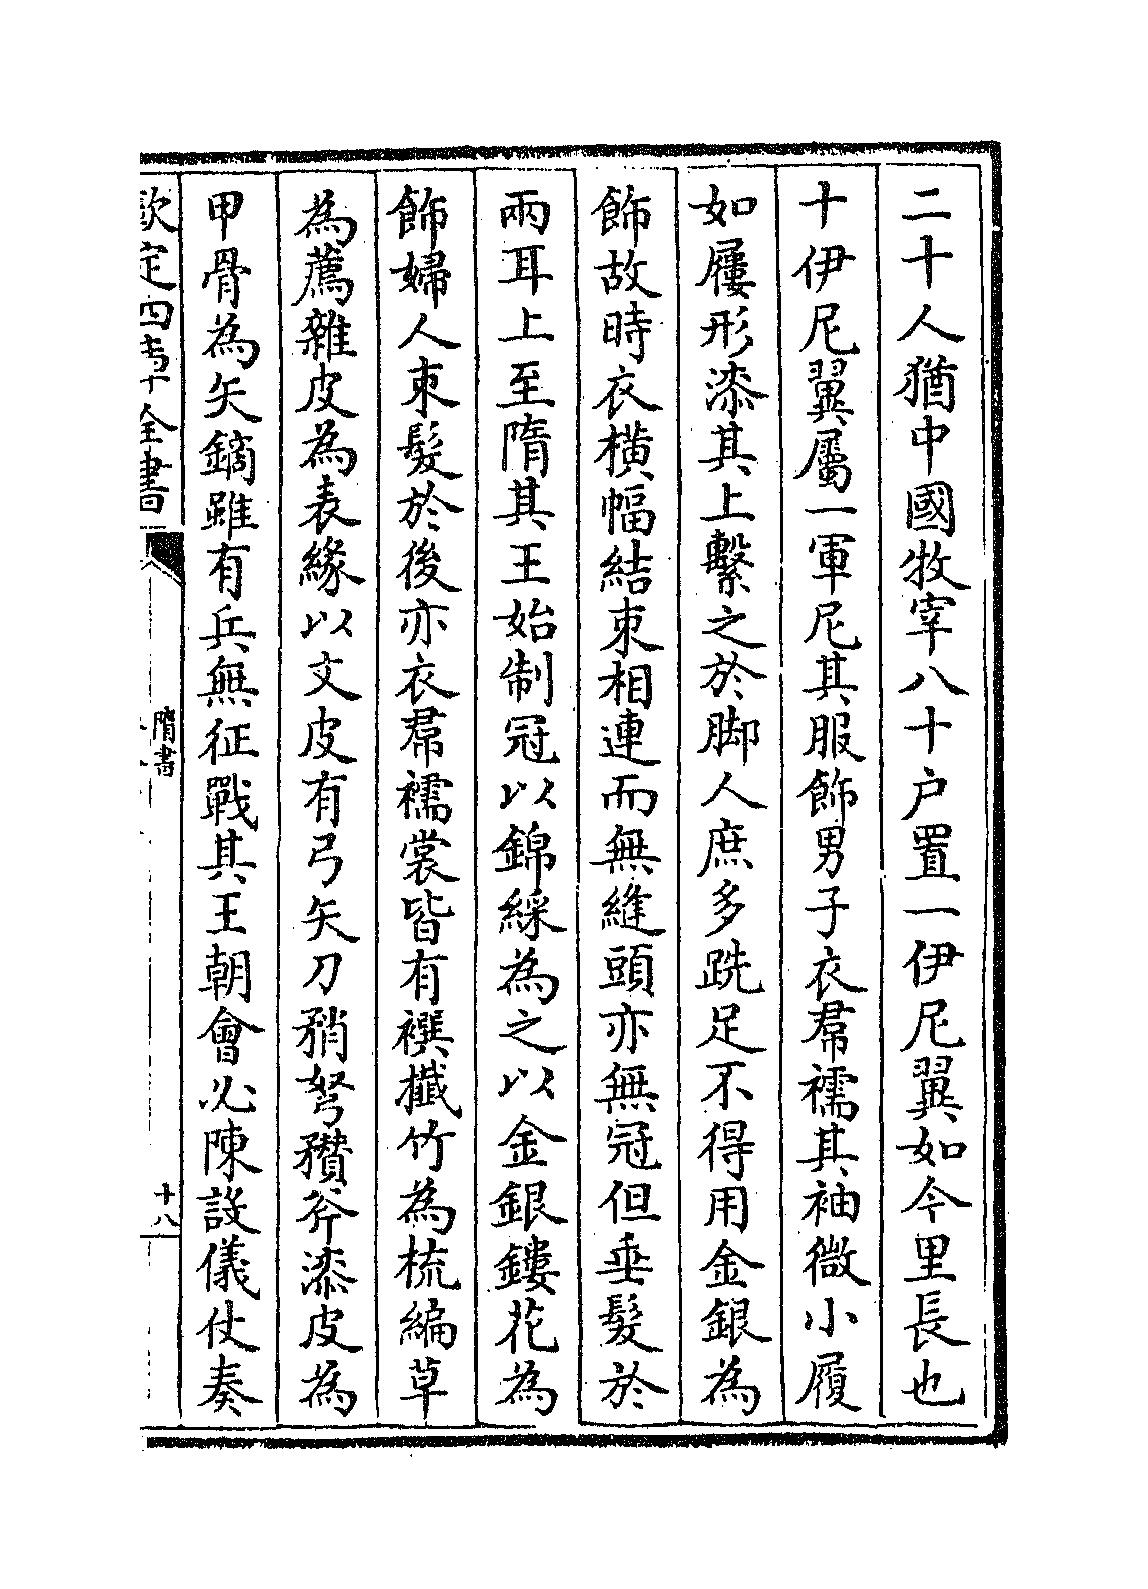 二十人猶中國牧宰八十户置一伊尼翼如今里長也
十伊尼翼屬一軍尼其服飾男子衣帬襦其袖微小履
如屨形漆其上繫之於脚人庶多跣足不得用金銀為
飾故時衣橫幅結束相連而無縫頭亦無冠但垂髮於
兩耳上至隋其王始制冠以錦綵為之以金銀鏤花為
飾婦人束髮於後亦衣帬襦裳皆有襈攕竹為梳編草
為薦雜皮為表緣以文皮有弓矢刀矟弩䂎斧漆皮為
甲骨為矢鏑雖有兵無征戰其王朝會必陳設儀仗奏
欽定四庫全書
隋書
十八